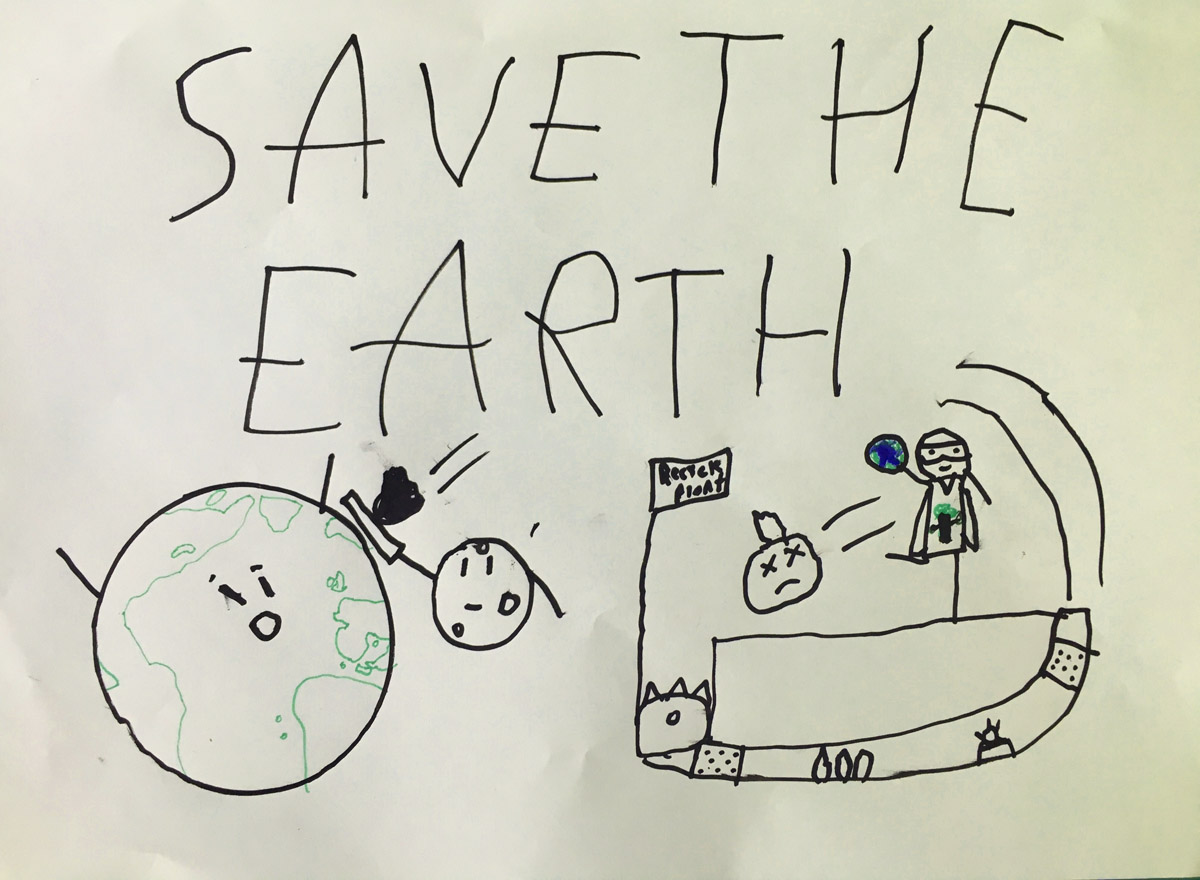 SAVE THE
EARTH
Recycle
plant